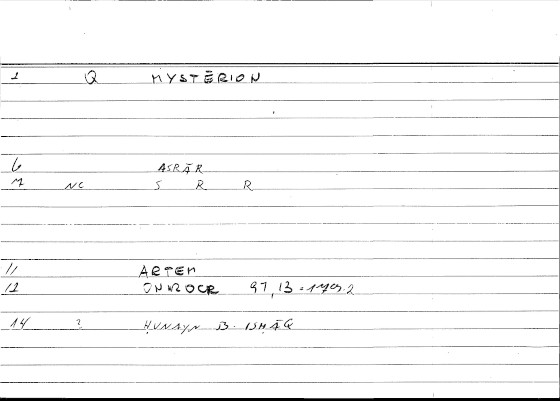 1 Q MYSTĒRION
6 ASRĀR
7 NC S R R
11 ARTEM
12 ONIROCR 97,13
14 2 ḤUNAYN B. ISḤĀQ